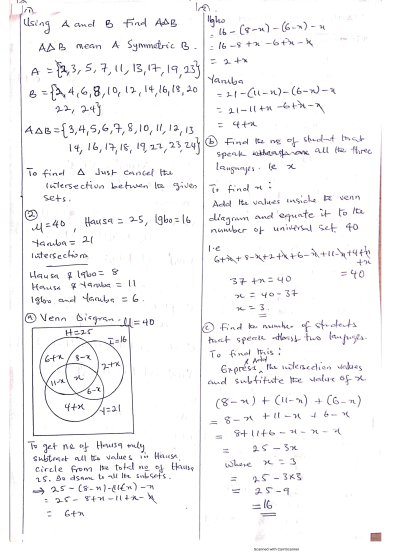 Using A and B find AΔB
AΔB mean A Symmetric B.
A = {2,3,5,7,11,13,17,19,23}
B = {2,4,6,8,10,12,14,16,18,20
22, 24}
AΔB={3,4,5,6,7,8,10,11,12,13
14,16,17,18,19,22,23,24}
To find Δ Just cancel the
intersection between the given
sets.
②
μ=40, Hausa = 25, Igbo=16
Yaruba = 21
Intersections
Hausa & Igbo = 8
Hausa & Yaruba = 11
Igbo and Yaruba = 6.
ⓐ Venn Diagram. μ=40
H=25
I=16
6+x
8-x
2+x
x
11-x
6-x
4+x
Y=21
To get no of Hausa only
subtract all the values in Hausa
circle from the total no of Hausa
25. Do same to all the subsets.
⇒ 25-(8-x)-(11-x)-x
= 25-8+x-11+x-x
= 6+x
Igbo
= 16-(8-x)-(6-x)-x
= 16-8+x-6+x-x
= 2+x
Yaruba
= 21-(11-x)-(6-x)-x
= 21-11+x-6+x-x
= 4+x
ⓑ Find the no of student that
speak all the three
languages. ie x
To find x:
Add the values inside the venn
diagram and equate it to the
number of universal set 40
i.e
6+x+8-x+2+x+6-x+11-x+4+x
+x
= 40
37+x=40
x = 40-37
x = 3.
ⓒ Find the number of students
that speak two languages.
To find this:
Add
Express the intersection values
and substitute the value of x
(8-x) + (11-x) + (6-x)
= 8-x + 11-x + 6-x
= 8+11+6-x-x-x
= 25-3x
where x = 3
= 25-3x3
= 25-9
=16
Scanned with CamScanner